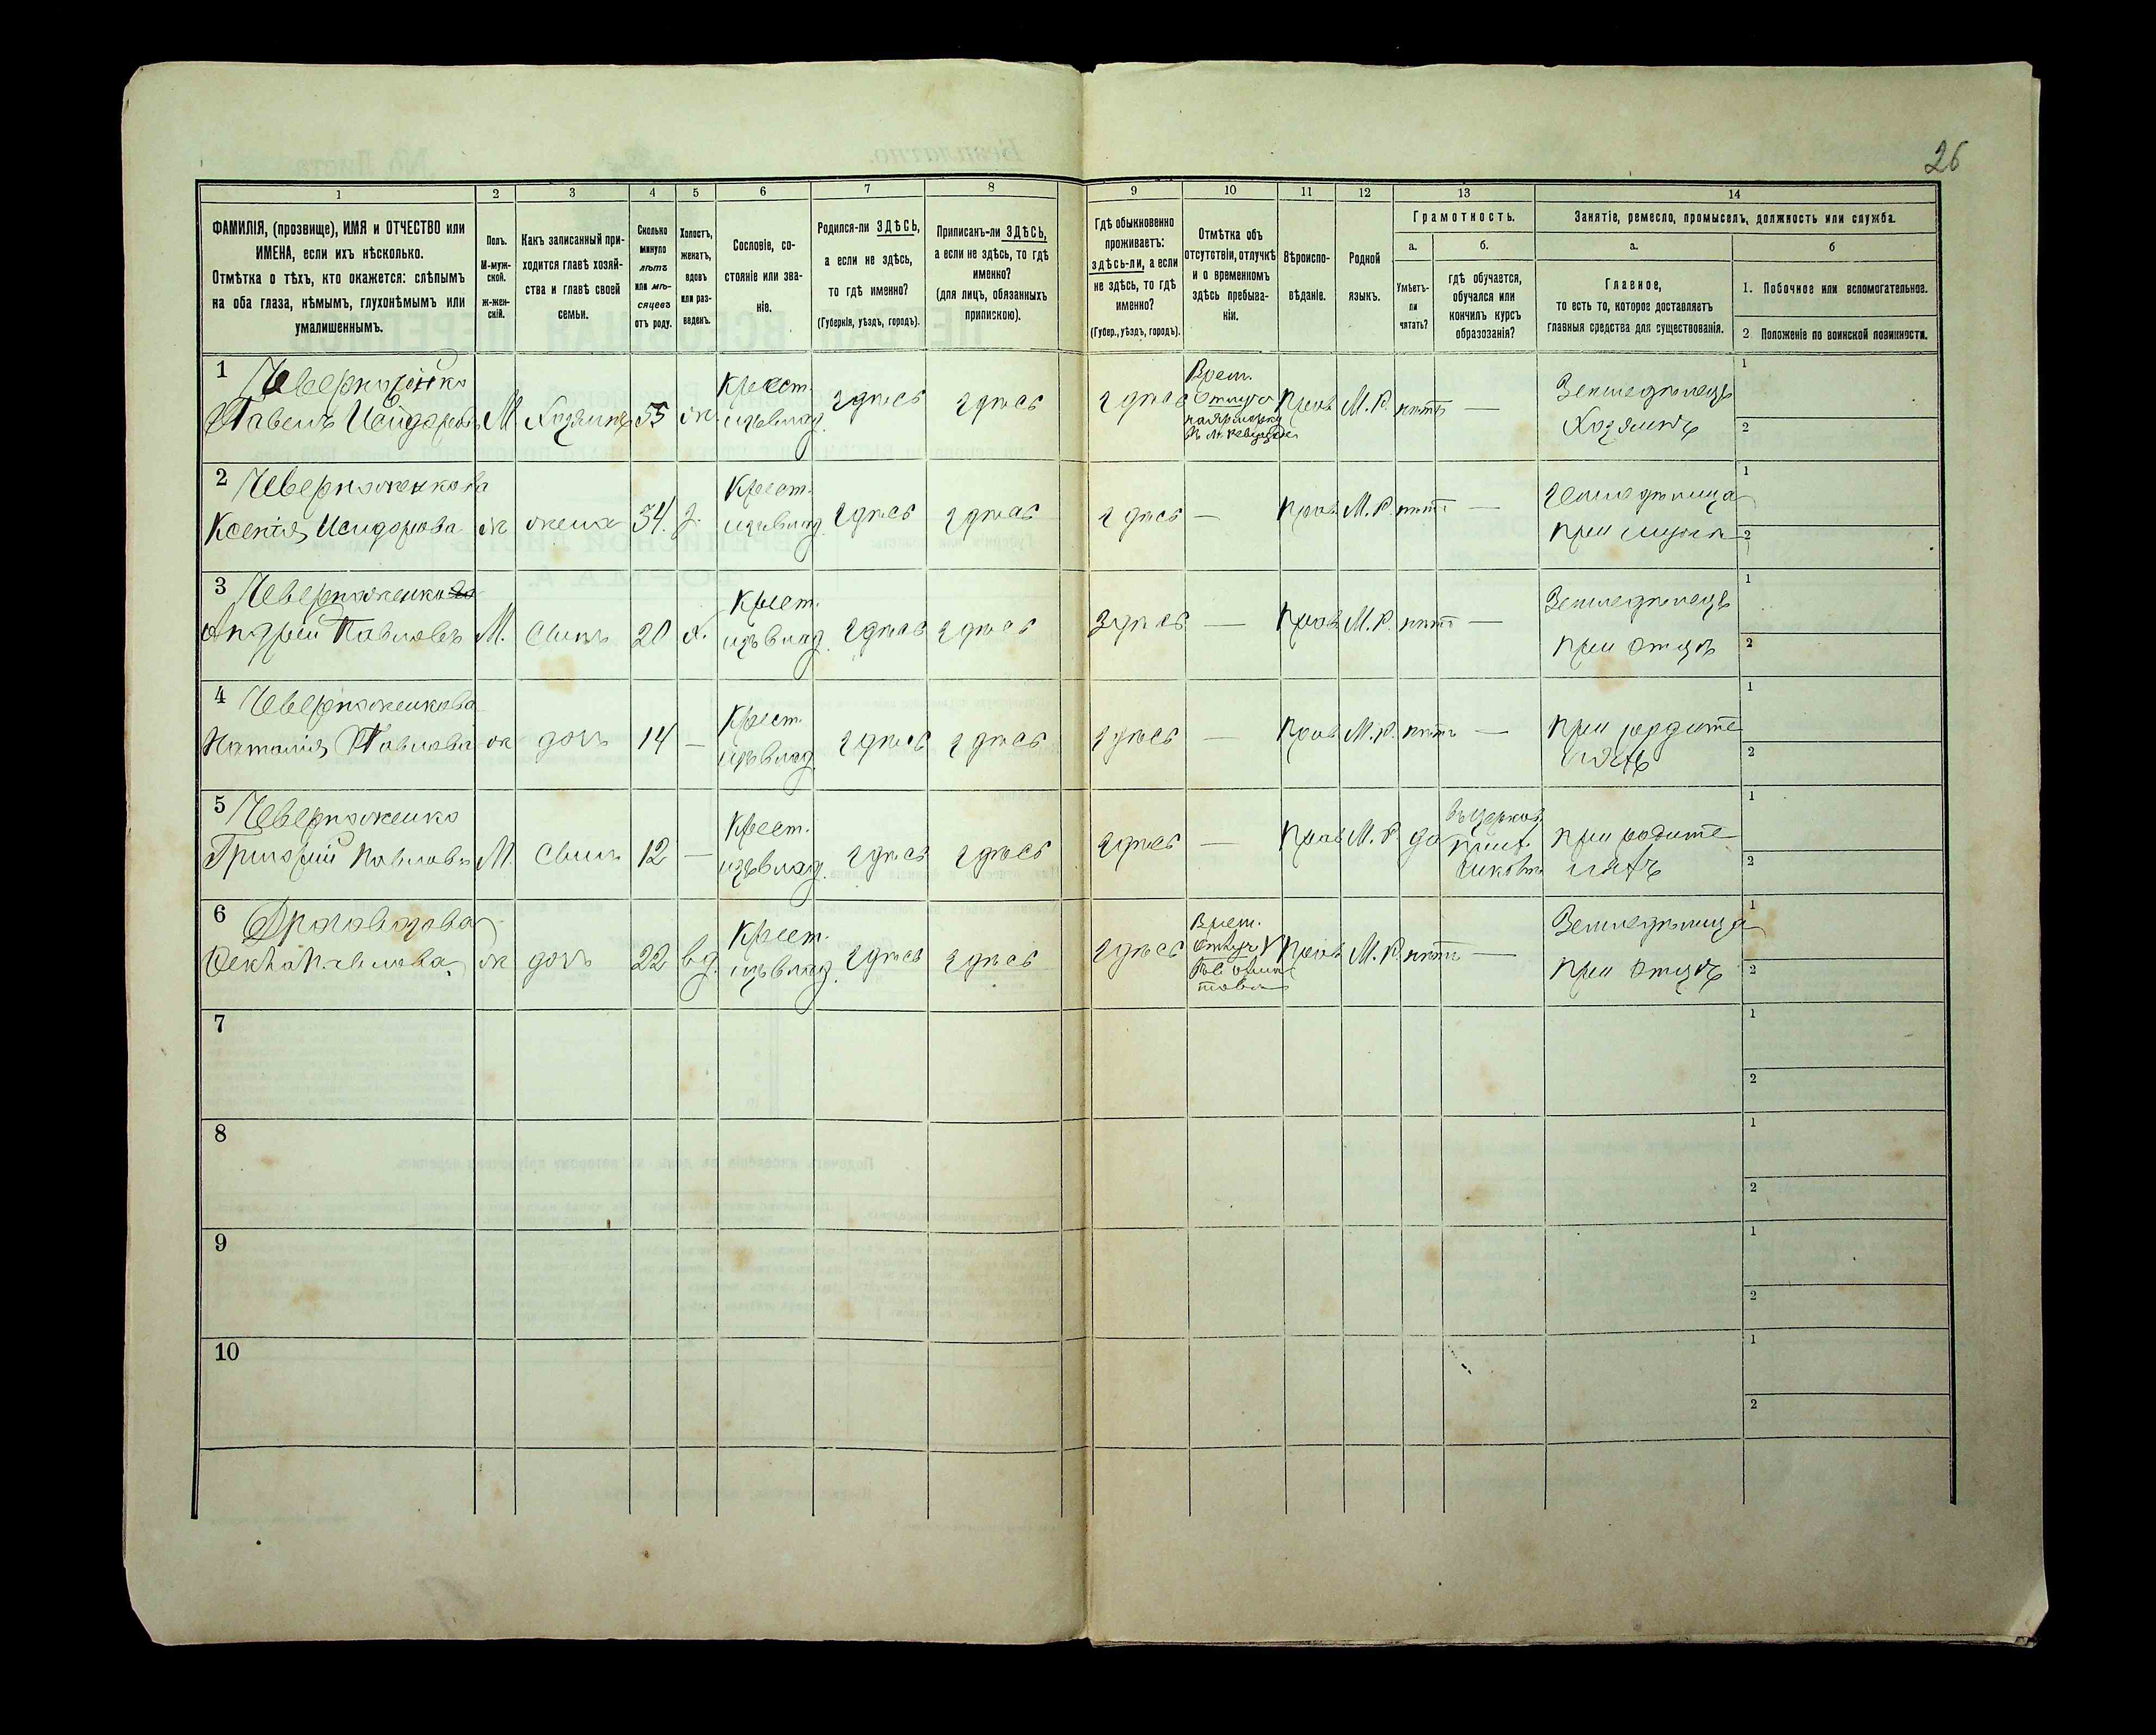 26
1 2 3 4 5 6 7 8 9 10 11 12 13 14
ФАМИЛІЯ, (прозвище), ИМЯ и ОТЧЕСТВО или
ИМЕНА, если ихъ нѣсколько.
Отмѣтка о тѣхъ, кто окажется: слѣпымъ
на оба глаза, нѣмымъ, глухонѣмымъ или
умалишеннымъ.
Полъ.
М-муж-
ской.
ж-жен-
скій.
Какъ записанный при-
ходится главѣ хозяй-
ства и главѣ своей
семьи.
Сколько
минуло
лѣтъ
или мѣ-
сяцевъ
отъ роду.
Холостъ,
женатъ,
вдовъ
или раз-
веденъ.
Сословіе, со-
стояніе или зва-
ніе.
Родился-ли ЗДѢСЬ,
а если не здѣсь,
то гдѣ именно?
(Губернія, уѣздъ, городъ).
Приписанъ-ли ЗДѢСЬ,
а если не здѣсь, то гдѣ
именно?
(для лицъ, обязанныхъ
припискою).
Гдѣ обыкновенно
проживаетъ:
здѣсь-ли, а если
не здѣсь, то гдѣ
именно?
(Губер., уѣздъ, городъ).
Отмѣтка объ
отсутствіи, отлучкѣ
и о временномъ
здѣсь пребыва-
ніи.
Вѣроиспо-
вѣданіе.
Родной
языкъ.
Грамотность.
а.
Умѣетъ-
ли
читать?
б.
гдѣ обучается,
обучался или
кончилъ курсъ
образованія?
Занятіе, ремесло, промыселъ, должность или служба.
а.
Главное,
то есть то, которое доставляетъ
главныя средства для существованія.
б
1. Побочное или вспомогательное.
2. Положеніе по воинской повинности.
1
Павелъ Исидоровъ М Хозяинъ 55 ж.
Крест.
изъ влад.
здѣсь здѣсь здѣсь
Врем.
Прав М.Р. нѣтъ —
Земледѣлецъ
Хозяинъ
1
2
2
Ксенія Исидорова ж жена 54. з.
Крест.
изъ влад.
здѣсь здѣсь здѣсь — Прав М.Р. нѣтъ —
земледѣлица
при мужѣ
1
2
3
Андрей Павловъ М. Сынъ 20 х.
Крест.
изъ влад.
здѣсь здѣсь здѣсь — Прав М.Р. нѣтъ —
Земледѣлецъ
при отцѣ
1
2
4
Наталія Павлова ж дочь 14 —
Крест.
изъ влад.
здѣсь здѣсь здѣсь — Прав М.Р. нѣтъ —
при родите
ляхъ
1
2
5
Григорій Павловъ М. Сынъ 12 —
Крест.
изъ влад.
здѣсь здѣсь здѣсь — Прав М.Р. да
при родите
ляхъ
1
2
6
Павлова ж дочь 22 вд.
Крест.
изъ влад.
здѣсь здѣсь здѣсь
Врем.
Прав М.Р. нѣтъ —
Земледѣлица
при отцѣ
1
2
7
1
2
8
1
2
9
1
2
10
1
2